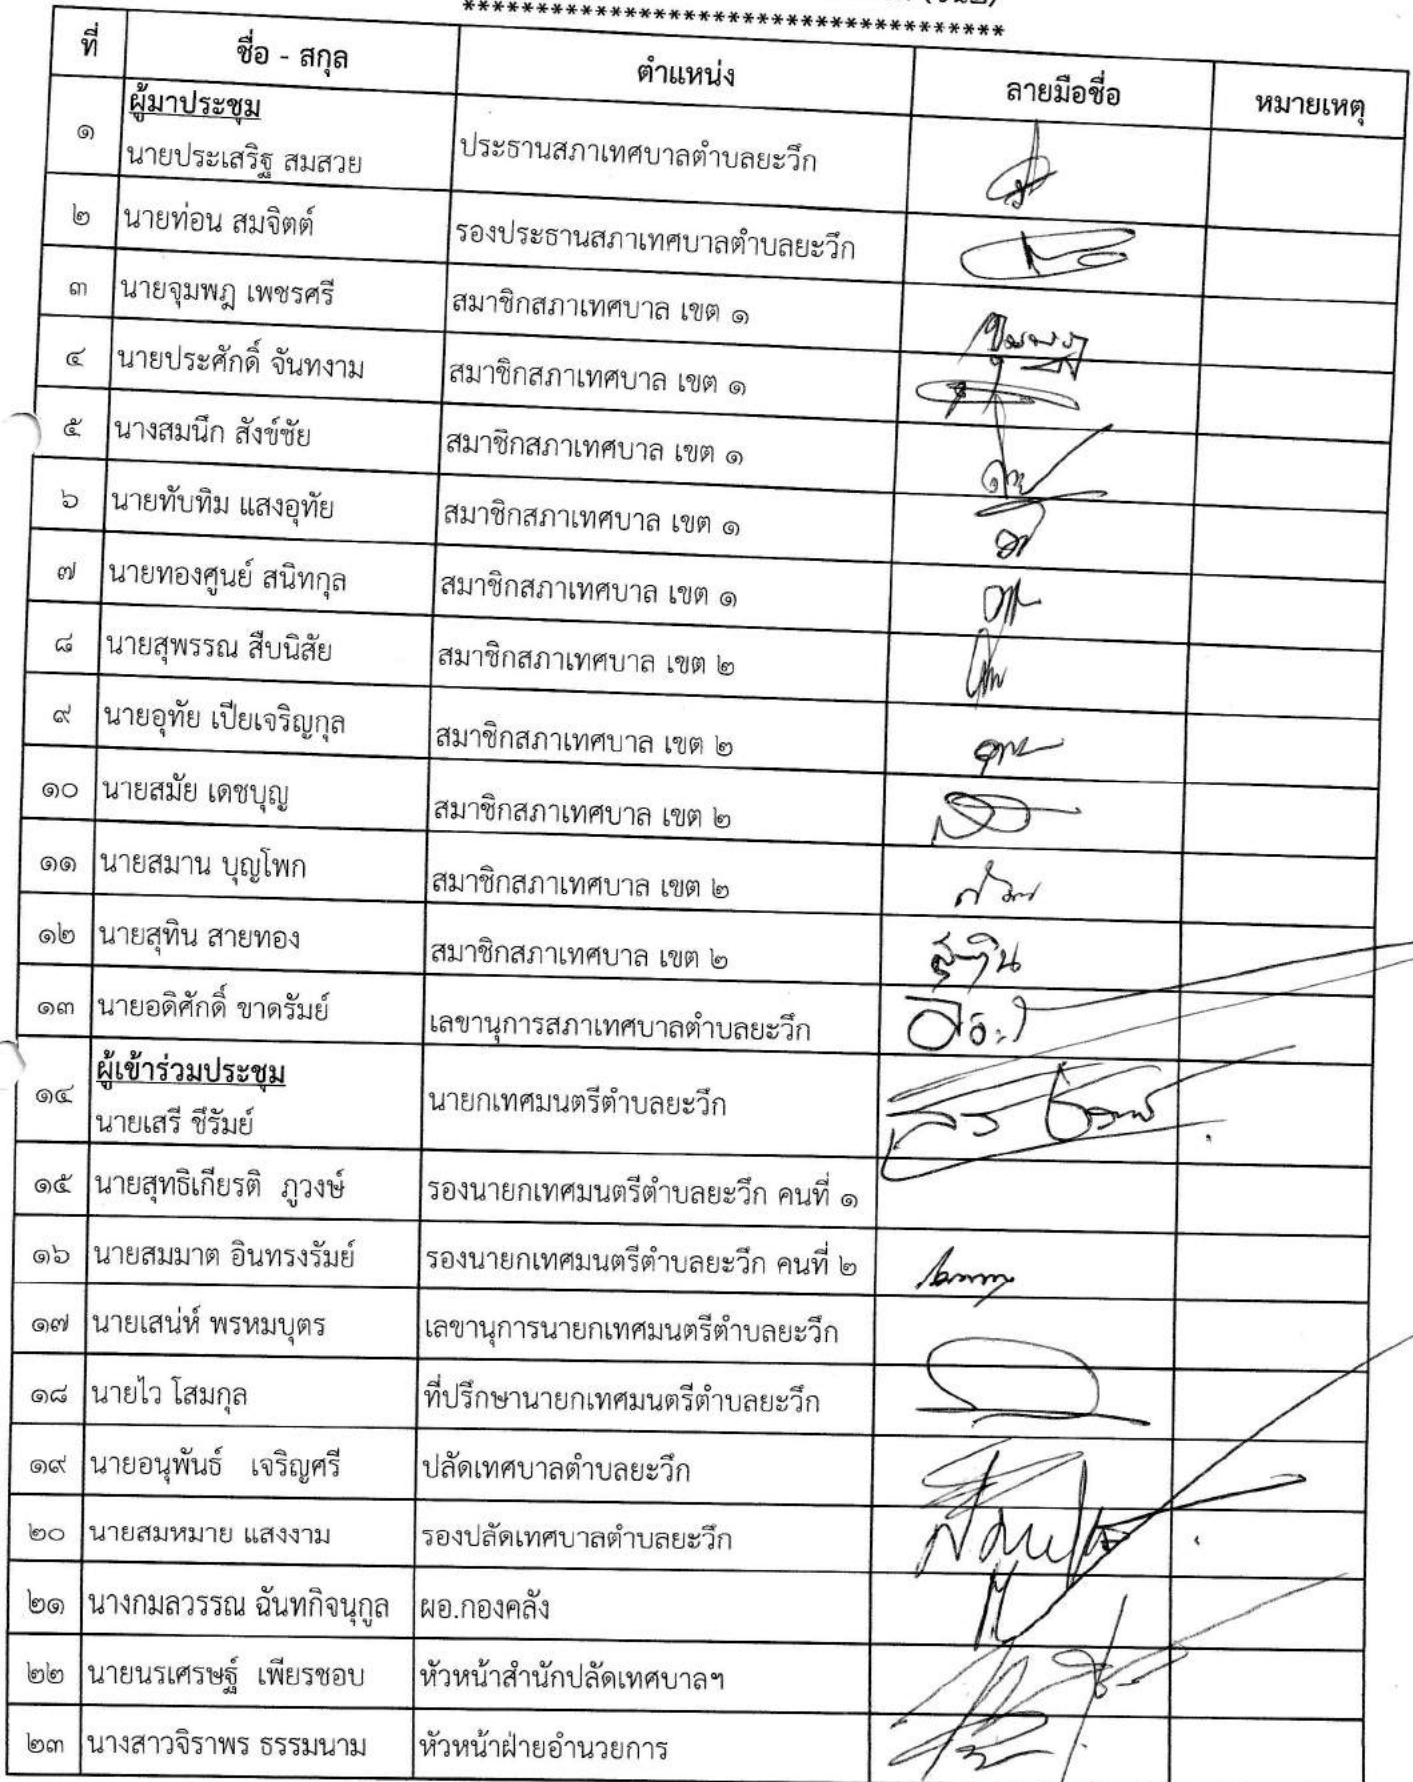 ************************************
ที่ ชื่อ - สกุล ตำแหน่ง ลายมือชื่อ หมายเหตุ
ผู้มาประชุม
๑ นายประเสริฐ สมสวย ประธานสภาเทศบาลตำบลยะวึก
๒ นายท่อน สมจิตต์ รองประธานสภาเทศบาลตำบลยะวึก
๓ นายจุมพฎ เพชรศรี สมาชิกสภาเทศบาล เขต ๑
๔ นายประศักดิ์ จันทงาม สมาชิกสภาเทศบาล เขต ๑
๕ นางสมนึก สังข์ชัย สมาชิกสภาเทศบาล เขต ๑
๖ นายทับทิม แสงอุทัย สมาชิกสภาเทศบาล เขต ๑
๗ นายทองศูนย์ สนิทกุล สมาชิกสภาเทศบาล เขต ๑
๘ นายสุพรรณ สืบนิสัย สมาชิกสภาเทศบาล เขต ๒
๙ นายอุทัย เปียเจริญกุล สมาชิกสภาเทศบาล เขต ๒
๑๐ นายสมัย เดชบุญ สมาชิกสภาเทศบาล เขต ๒
๑๑ นายสมาน บุญโพก สมาชิกสภาเทศบาล เขต ๒
๑๒ นายสุทิน สายทอง สมาชิกสภาเทศบาล เขต ๒ สุทิน
๑๓ นายอดิศักดิ์ ขาดรัมย์ เลขานุการสภาเทศบาลตำบลยะวึก
ผู้เข้าร่วมประชุม
๑๔ นายเสรี ชีรัมย์ นายกเทศมนตรีตำบลยะวึก
๑๕ นายสุทธิเกียรติ ภูวงษ์ รองนายกเทศมนตรีตำบลยะวึก คนที่ ๑
๑๖ นายสมมาต อินทรงรัมย์ รองนายกเทศมนตรีตำบลยะวึก คนที่ ๒
๑๗ นายเสน่ห์ พรหมบุตร เลขานุการนายกเทศมนตรีตำบลยะวึก
๑๘ นายไว โสมกุล ที่ปรึกษานายกเทศมนตรีตำบลยะวึก
๑๙ นายอนุพันธ์ เจริญศรี ปลัดเทศบาลตำบลยะวึก
๒๐ นายสมหมาย แสงงาม รองปลัดเทศบาลตำบลยะวึก
๒๑ นางกมลวรรณ ฉันทกิจนุกูล ผอ.กองคลัง
๒๒ นายนรเศรษฐ์ เพียรชอบ หัวหน้าสำนักปลัดเทศบาลฯ
๒๓ นางสาวจิราพร ธรรมนาม หัวหน้าฝ่ายอำนวยการ